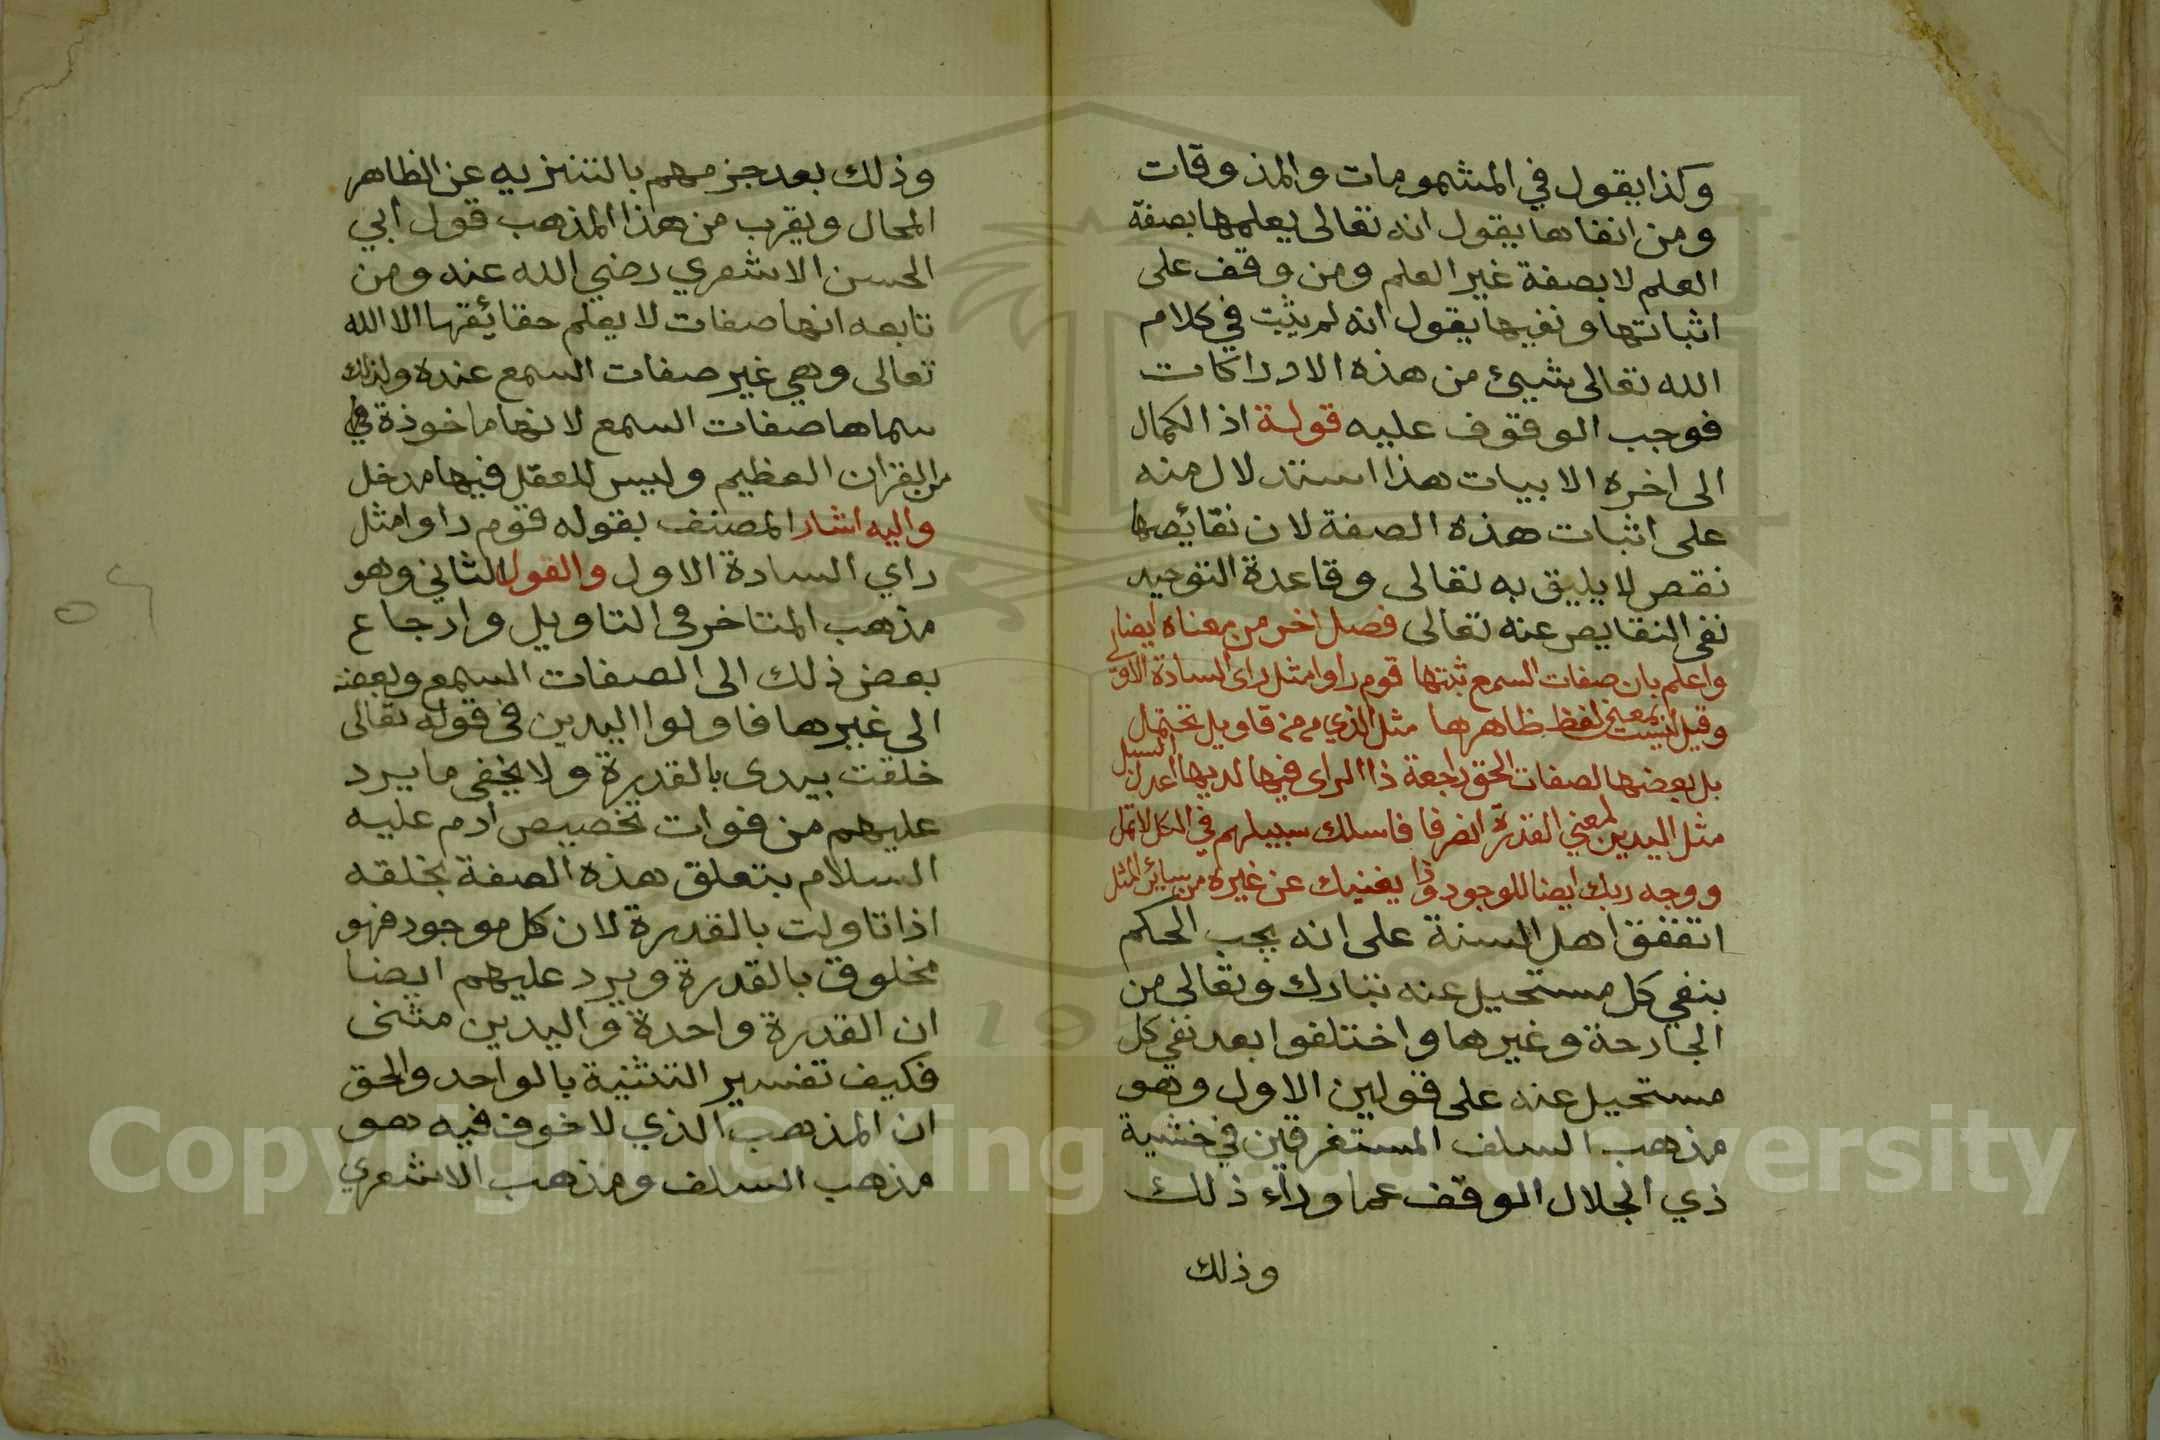 وكذا يقول في المشمومات والمذوقات
ومن انفاها يقول انه تعالى يعلمها بصفة
العلم لا بصفة غير العلم ومن وقف على
اثباتها ونفيها يقول انه لم يثبت في كلام
الله تعالى شيئ من هذه الادراكات
فوجب الوقوف عليه قولة اذ الكمال
الى اخره الابيات هذا استدلال منه
على اثبات هذه الصفة لان نقائصها
نقص لا يليق به تعالى وقاعدة التوحيد
نفى النقايص عنه تعالى فصل اخر من معناه ايضا
واعلم بان صفات السمع ثبتها قوم راوا مثل راى السادة الاول
وقيل ليست بمعنى لفظ ظاهرها مثل الذي من قاويل تحتمل
بل بعضها لصفات الحق راجعة ذا الراى فيها لديها اعدل السبل
مثل اليدين لمعني القدرة انصرفا فاسلك سبيلهم في الكل لا تمل
ووجه ربك ايضا للوجود وذا يغنيك عن غيره من سائر المثل
اتققق اهل السنة على انه يجب الحكم
بنفي كل مستحيل عنه تبارك وتعالى من
الجارحة وغيرها واختلفوا بعد نفي كل
مستحيل عنه على قولين الاول وهو
مذهب السلف المستغرقين في خشية
ذي الجلال الوقف عما وراء ذلك
وذلك
وذلك بعد جزمهم بالتنزيه عن الظاهر
المحال ويقرب من هذا المذهب قول ابي
الحسن الاشعري رضي الله عنه ومن
تابعه انها صفات لا يعلم حقائقها الا الله
تعالى وهي غير صفات السمع عنده ولذلك
سماها صفات السمع لانها ماخوذة في
من القران العظيم وليس للعقل فيها مدخل
واليه اشار المصنف بقوله قوم راوا مثل
راي السادة الاول والقول الثاني وهو
مذهب المتاخر فى التاويل وارجاع
بعض ذلك الى الصفات السمع وبعضه
الى غيرها فاولوا اليدين فى قوله تعالى
خلقت بيدى بالقدرة ولا يخفى ما يرد
عليهم من فوات تخصيص ادم عليه
السلام بتعلق هذه الصفة بخلقه
اذا تاولت بالقدرة لان كل موجود فهو
مخلوق بالقدرة ويرد عليهم ايضا
ان القدرة واحدة واليدين مثنى
فكيف تفسير التثنية بالواحد والحق
ان المذهب الذي لا خوف فيه هو
مذهب السلف ومذهب الاشعري
Copyright © King Saud University